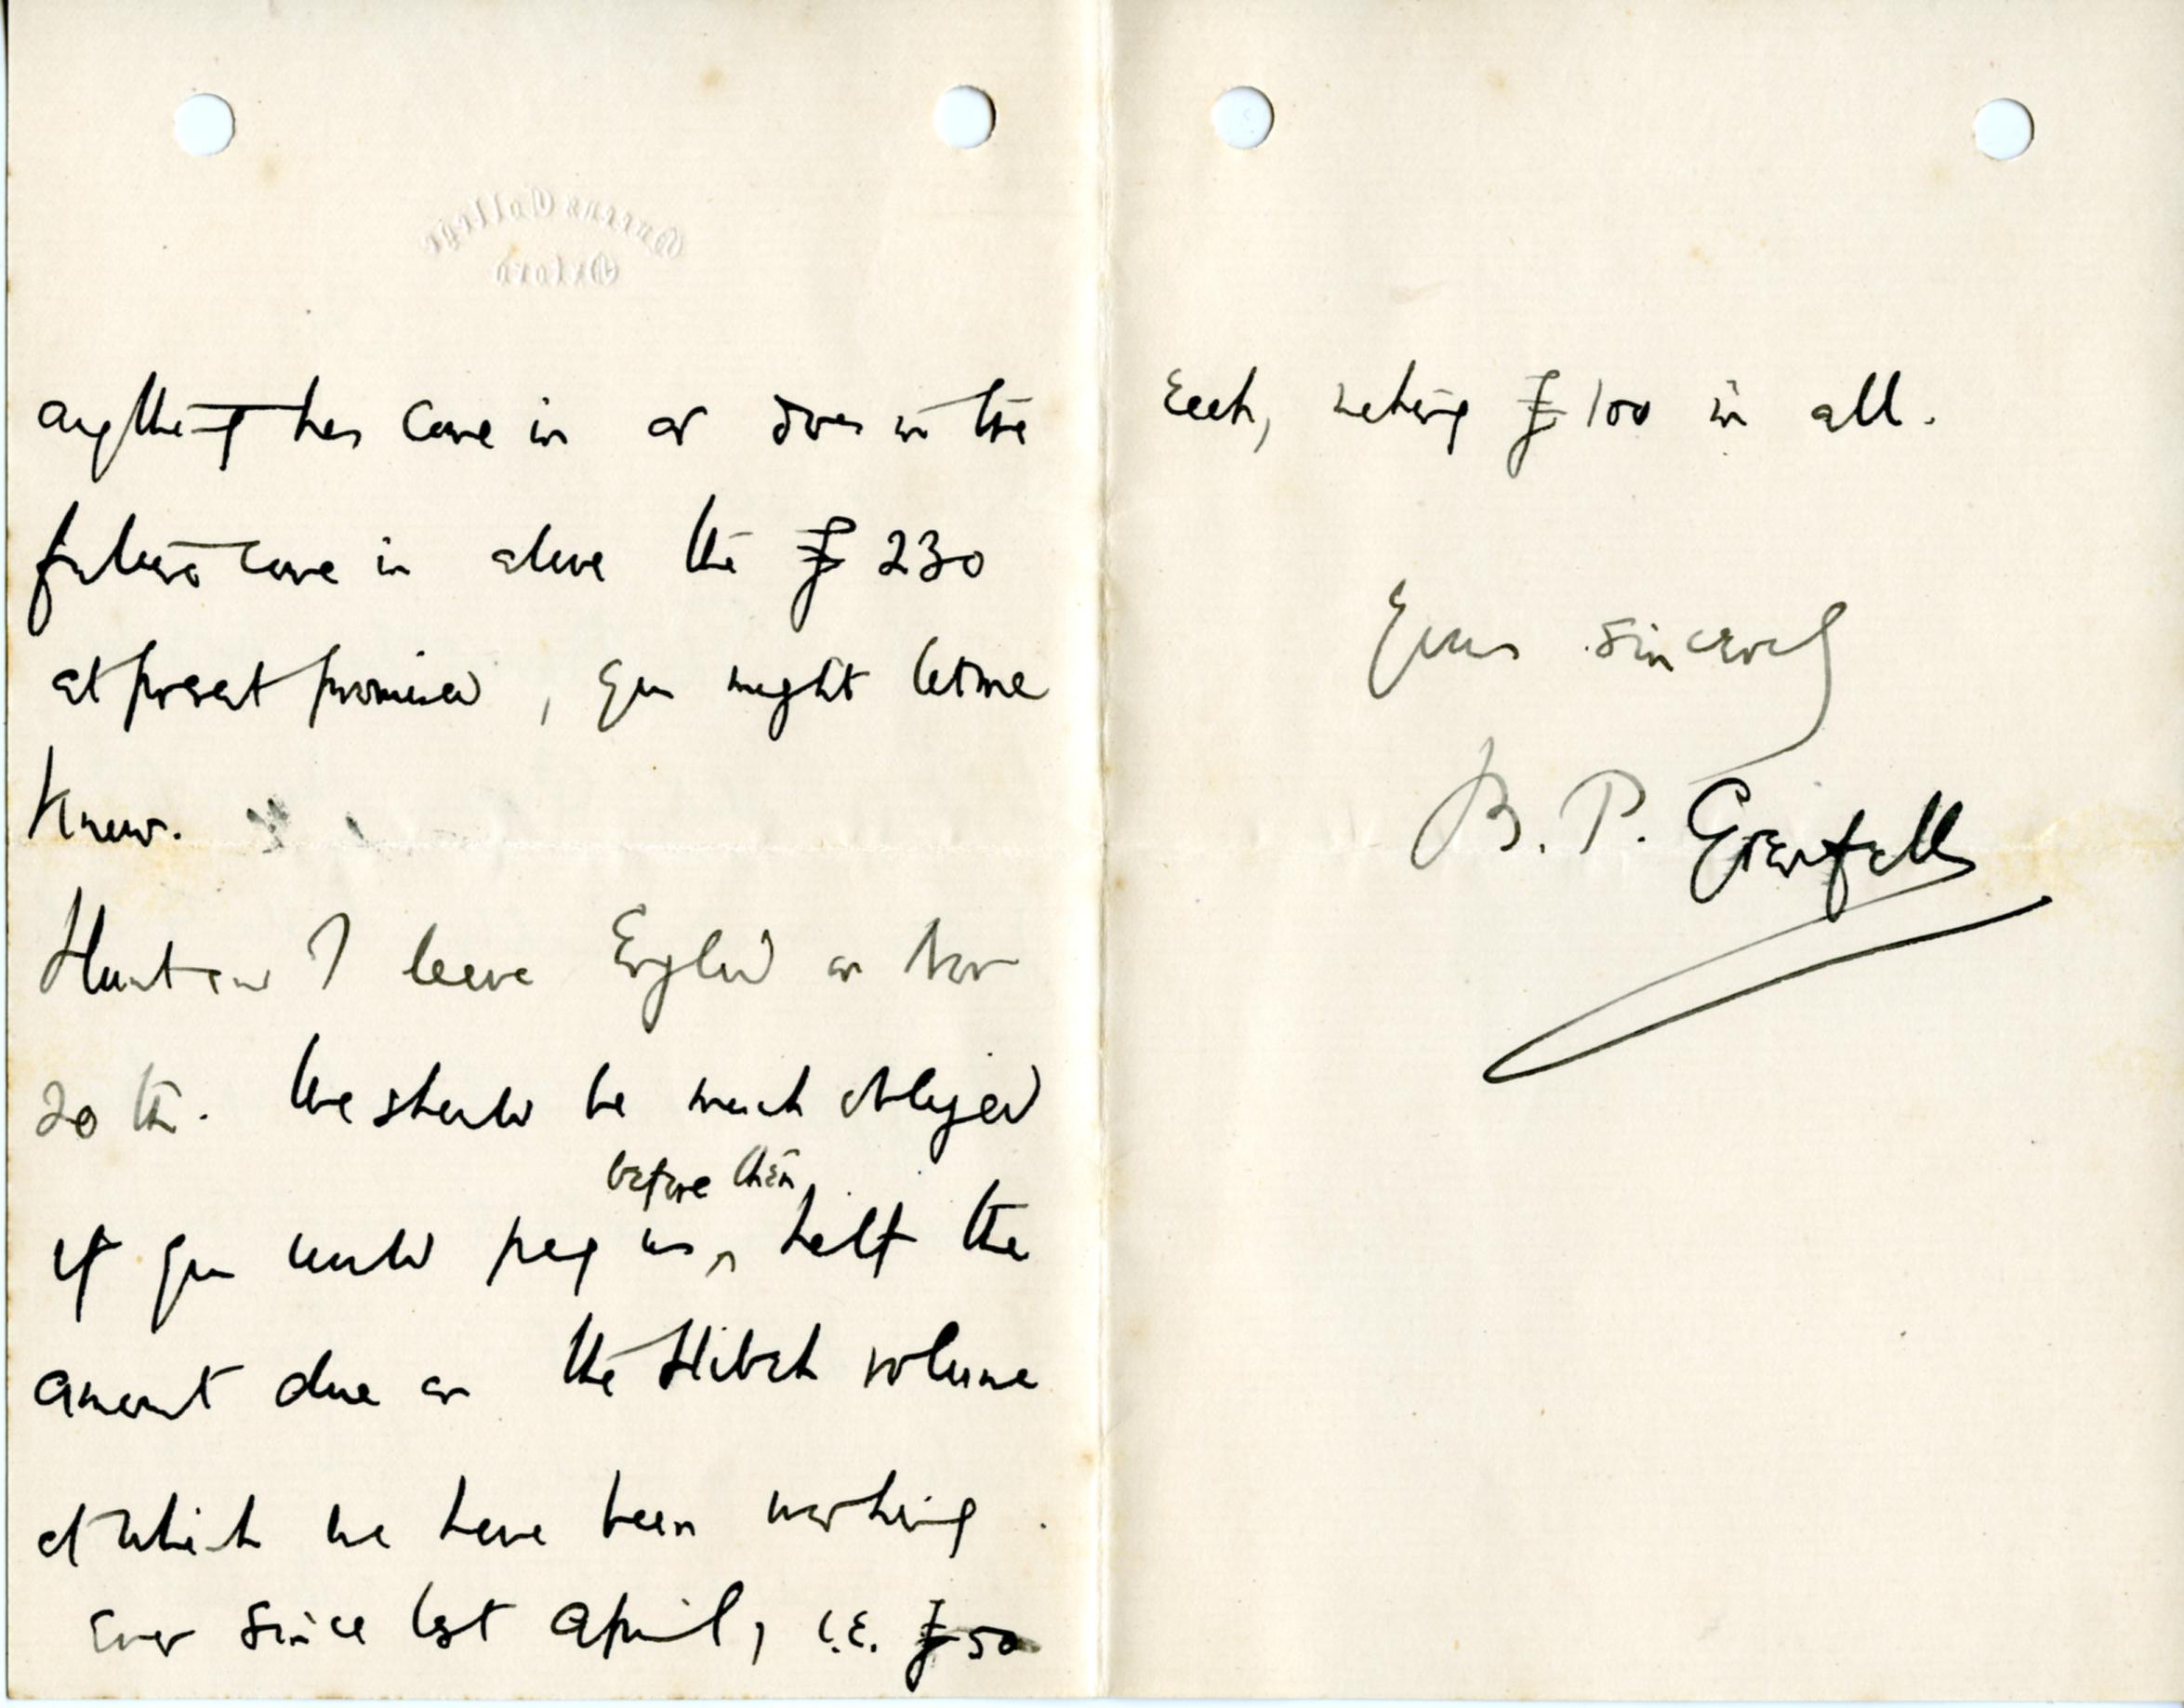 Queens College
Oxford
anything has come in or does in the
future come in above the £230
at present promised, you might let me
know.
Hunt and I leave England on Nov
20th. We should be much obliged
before then
if you could pay us ‸ half the
amount due on the Hibeh volume
at which we have been working
ever since last April, i.e. £50
each, making £100 in all.
Yours sincerely
B. P. Grenfell